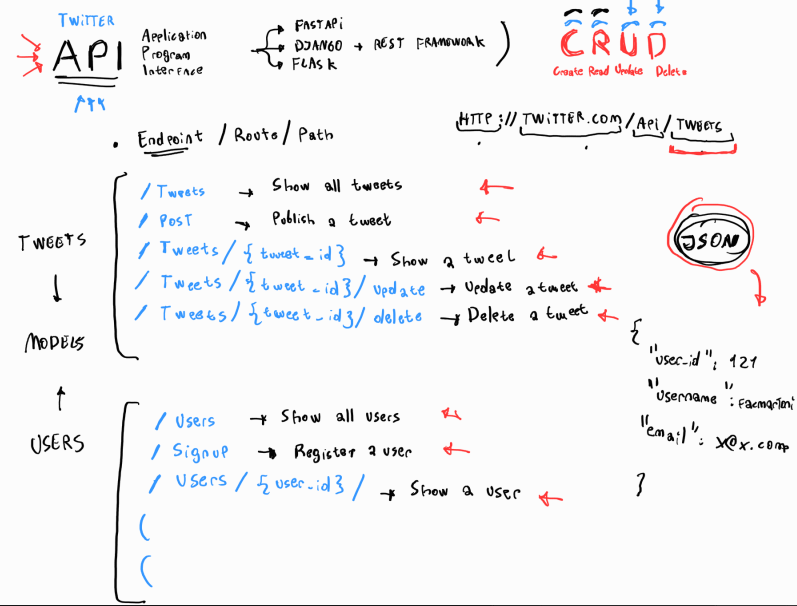 TWITTER
API
Application
Program
Interface
FASTAPI
DJANGO → REST FRAMEWORK
FLASK
)
CRUD
Create Read Update Delete
• Endpoint / Route / Path
HTTP://TWITTER.COM/Api/TWEETS
TWEETS
MODELS
USERS
/ Tweets → Show all tweets
/ POST → Publish a tweet
/ Tweets / {tweet_id} → Show a tweet
/ Tweets / {tweet_id} / update → Update a tweet
/ Tweets / {tweet_id} / delete → Delete a tweet
/ Users → Show all users
/ Signup → Register a user
/ Users / {user_id} / → Show a user
(
(
JSON
{
"user_id": 121
"username":
"email": x@x.com
}